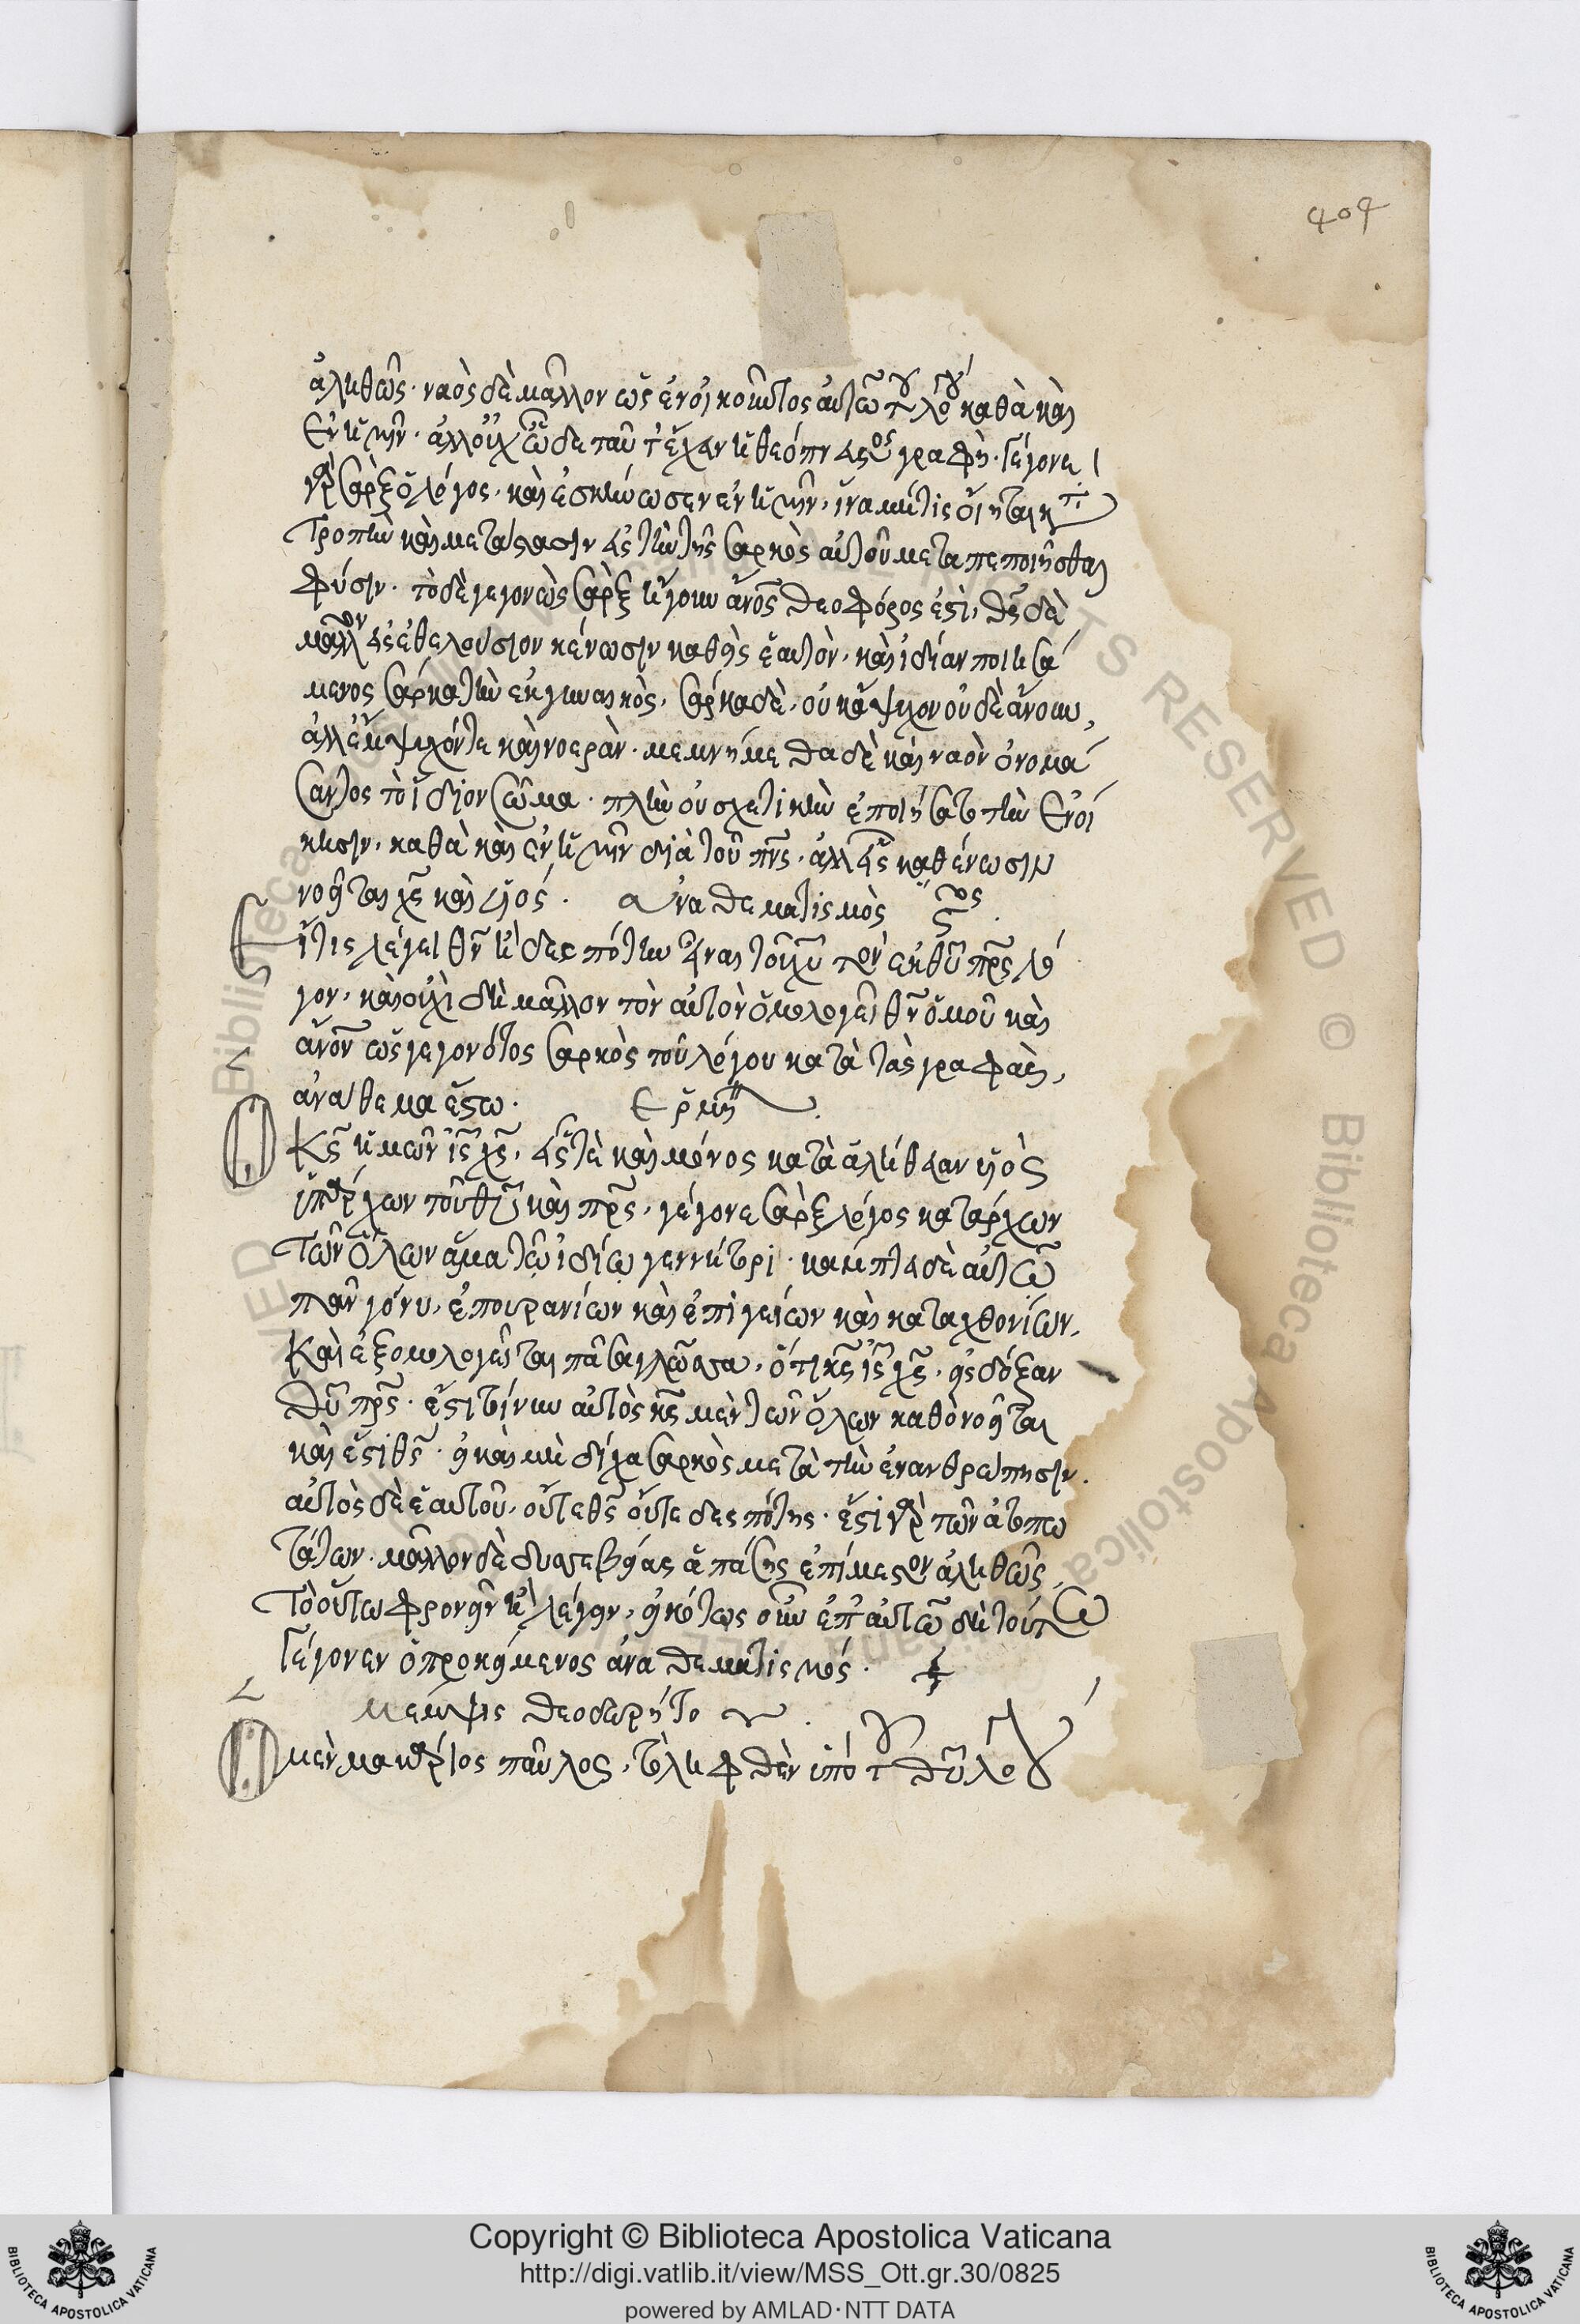 409
ἀληθῶς· ναὸς δὲ μᾶλλον ὡς ἐνοικοῦντος αὐτῷ τοῦ λόγου καθὰ καὶ
ἐν ἡμῖν· ἀλλ' οὐχ ὧδε ταῦτ' ἔχειν ἡ θεόπνευστος γραφή· γέγονε
γὰρ σὰρξ ὁ λόγος· καὶ ἐσκήνωσεν ἐν ἡμῖν· ἵνα μή τις οἴηται κατὰ
τροπὴν καὶ μετάστασιν εἰς τὴν τῆς σαρκὸς αὐτοῦ μεταπεποιῆσθαι
φύσιν· τὸ δὲ γεγονὼς σὰρξ ἤγουν ἄνος θεοφόρος ἐστὶ, θς δὲ
μᾶλλον εἰς ἐθελούσιον κένωσιν καθεὶς ἑαυτὸν· καὶ ἰδίαν ποιησά
μενος σάρκα τὴν ἐκ γυναικὸς· σάρκα δὲ, οὐκ ἄψυχον οὐδὲ ἄνουν,
ἀλλ' ἔμψυχόν τε καὶ νοεράν· μεμνήμεθα δὲ καὶ ναὸν ὀνομά
σαντος τὸ ἴδιον σῶμα· πλὴν οὐ σχετικὴν ἐποιήσατο τὴν ἐνοί
κησιν· καθὰ καὶ ἐν ἡμῖν διὰ τοῦ πνς· ἀλλ' εἷς καθ' ἕνωσιν
νοεῖται χς καὶ υἱός· ἀναθεματισμὸς ϛος
εἴ τις λέγει θν ἢ δεσπότην εἶναι τοῦ χυ τὸν ἐκ θυ πρς λό
γον· καὶ οὐχὶ δὴ μᾶλλον τὸν αὐτὸν ὁμολογεῖ θν ὁμοῦ καὶ
ἄνον ὡς γεγονότος σαρκὸς τοῦ λόγου κατὰ τὰς γραφάς,
ἀνάθεμα ἔστω· ἑρμη
ὁ κς ἡμῶν ις χς, εἷς τε καὶ μόνος κατὰ ἀλήθειαν υἱὸς
ὑπάρχων τοῦ θυ καὶ πρς, γέγονε σὰρξ λόγος κατάρχων
τῶν ὅλων ἅμα τῷ ἰδίῳ γεννήτορι· κάμπτει δὲ αὐτῷ
πᾶν γόνυ, ἐπουρανίων καὶ ἐπιγείων καὶ καταχθονίων·
καὶ ἐξομολογεῖται πᾶσα γλῶσσα, ὅτι κς ις χς, εἰς δόξαν
θυ πρς· ἔστι τοίνυν αὐτὸς κς μὲν τῶν ὅλων καθὸ νοεῖται
καὶ ἔστι θς· εἰ καὶ μὴ δίχα σαρκὸς μετὰ τὴν ἐνανθρώπησιν·
αὐτὸς δὲ ἑαυτοῦ, οὔτε θς οὔτε δεσπότης· ἔστι γὰρ τῶν ἀτοπω
τάτων· μᾶλλον δὲ δυσσεβείας ἁπάσης ἐπίμεστον ἀληθῶς,
τὸ οὕτω φρονεῖν ἢ λέγειν· εἰκότως οὖν ἐπ' αὐτῷ δὴ τούτῳ
γέγονεν ὁ προκείμενος ἀναθεματισμός·
μέμψις θεοδωρήτου
ὁ μὲν μακάριος παῦλος, τὸ ληφθὲν ὑπὸ τοῦ θυ λόγου
Copyright © Biblioteca Apostolica Vaticana
http://digi.vatlib.it/view/MSS_Ott.gr.30/0825
powered by AMLAD·NTT DATA